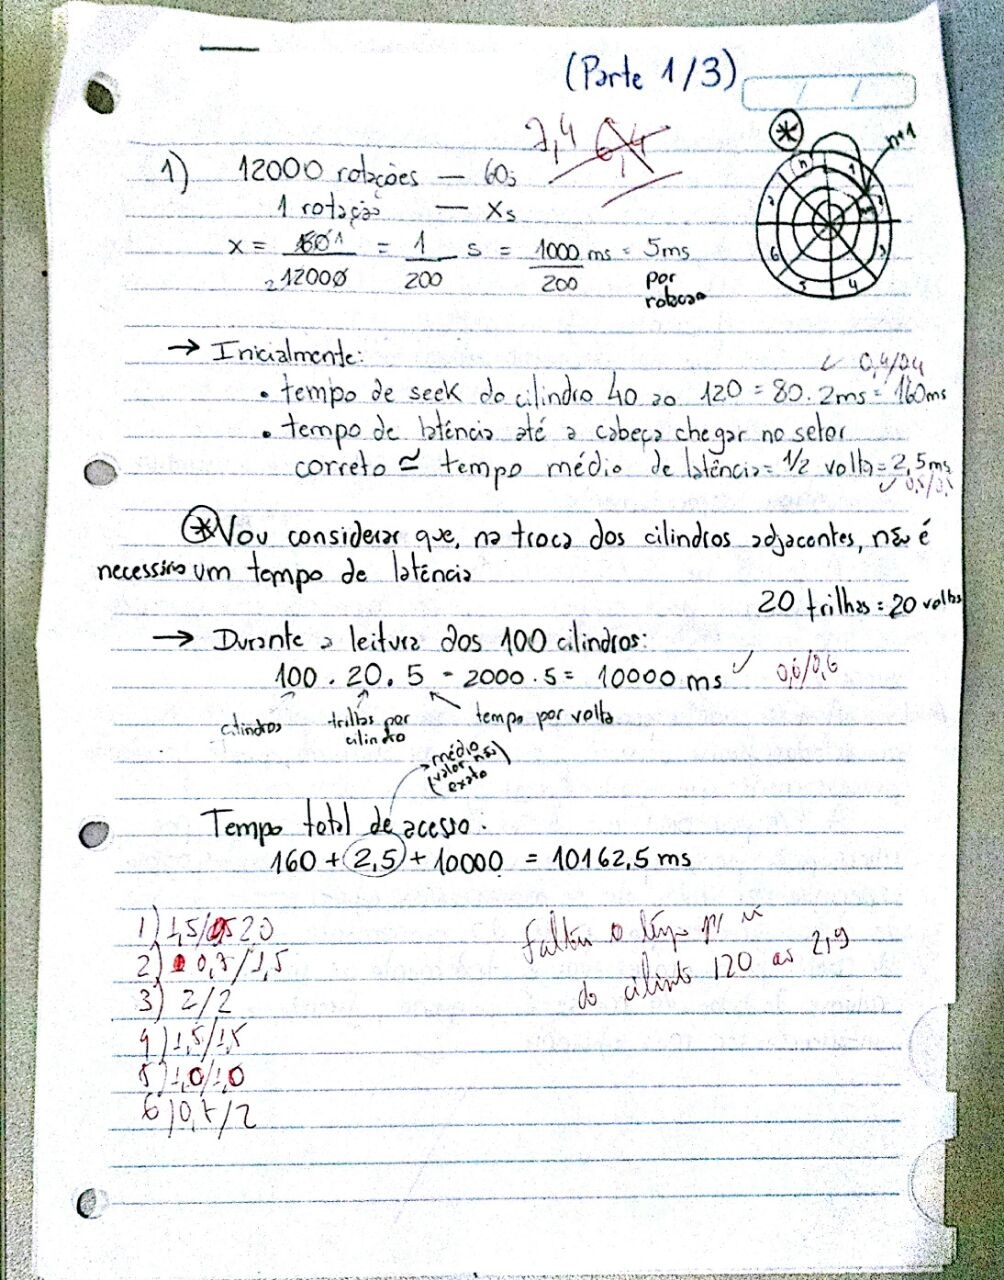 (Parte 1/3)
7,4 6,4
* n+1
n 1 2 3 4 5 6 7
1) 12000 rotações — 60s
1 rotação — Xs
X = 60 1 / 2 12000 = 1/200 s = 1000 ms/200 = 5ms
por
rotacao
→ Inicialmente:
✓ 0,4/0,4
• tempo de seek do cilindro 40 ao 120 = 80 . 2ms = 160ms
• tempo de latência até a cabeça chegar no setor
correto ≃ tempo médio de latência = 1/2 volta = 2,5ms
✓ 0,5/0,5
* Vou considerar que, na troca dos cilindros adjacentes, não é
necessário um tempo de latência
20 trilhas = 20 voltas
→ Durante a leitura dos 100 cilindros:
100 . 20 . 5 = 2000 . 5 = 10000 ms ✓ 0,6/0,6
cilindros trilhas por cilindro tempo por volta
médio
(valor não
exato)
Tempo total de acesso:
160 + 2,5 + 10000 = 10162,5 ms
1) 1,5/2,0
2) 0,7/1,5
3) 2/2
4) 1,5/1,5
5) 1,0/1,0
6) 0,7/2
Faltou o tempo p/ ir
do cilindro 120 ao 219